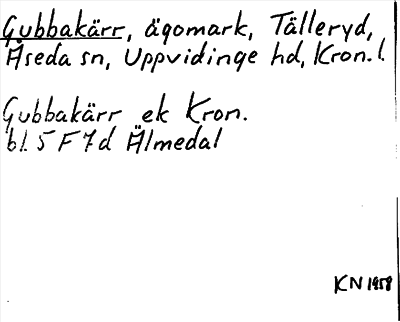 Gubbakärr, ägomark, Tälleryd,
Åseda sn, Uppvidinge hd, Kron. l.
Gubbakärr ek Kron.
bl. 5 F 7d Älmedal
KN 1958